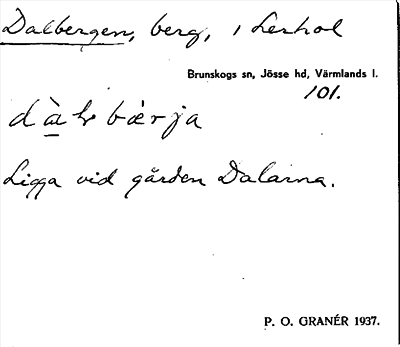 Dalbergen, berg, i Lerhol
Brunskogs sn, Jösse hd, Värmlands l.
101.
Ligga vid gården Dalarna.
P. O. GRANÉR 1937.